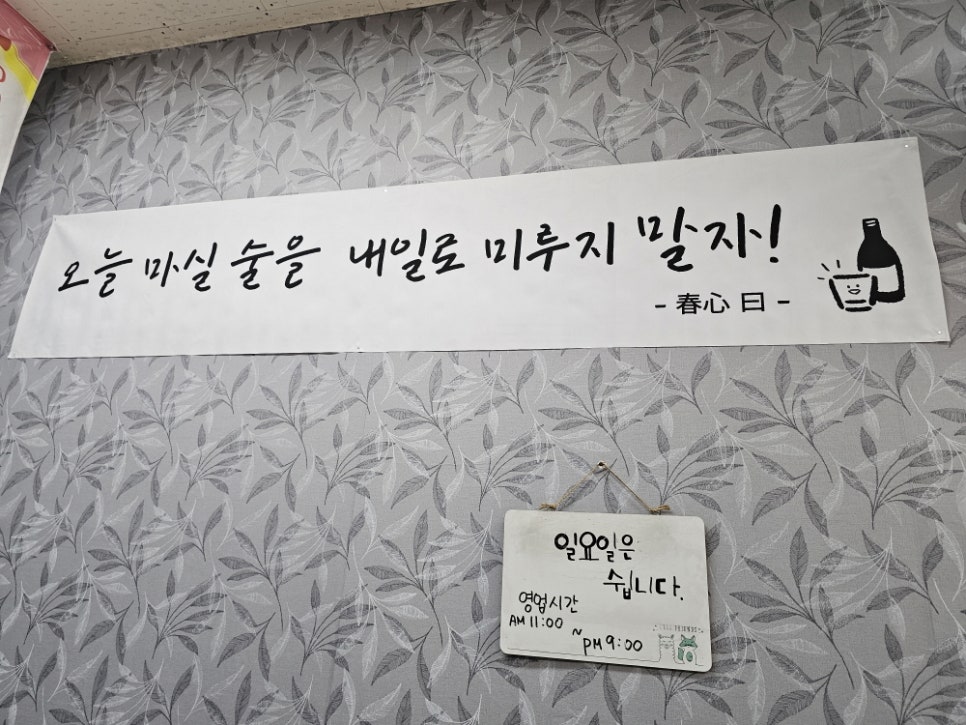 오늘 마실 술을 내일로 미루지 말자!
- 春心 曰 -
일요일은
쉽니다.
영업시간
AM 11:00
~PM 9:00